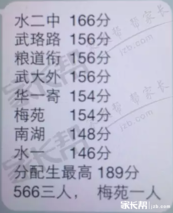 水二中 166分
武珞路 156分
粮道衔 156分
武大外 156分
华一寄 154分
梅苑 154分
南湖 148分
水一 146分
分配生最高 189分
566三人， 梅苑一人
家长帮
jzb.com